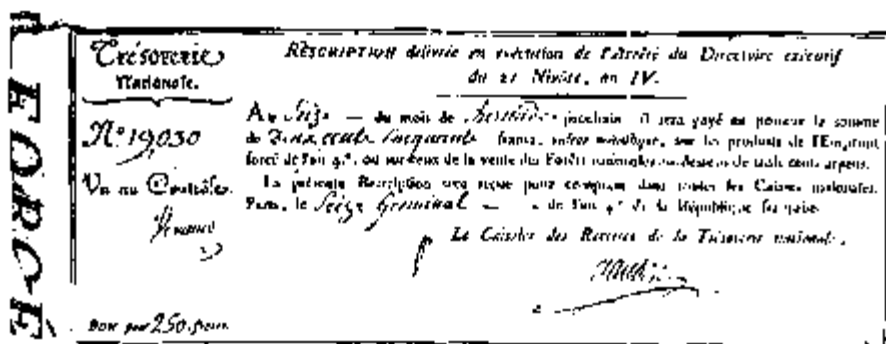 Trésorerie
Nationale.
N° 19,030
Vu au Contrôle.
Bon pour 250 francs
RESCRIPTION délivrée en exécution de l'Arrêté du Directoire exécutif
du 21 Nivôse, an IV.
Au Seize — du mois de prochain il sera payé au porteur la somme
de Deux cents cinquante francs, valeur métallique, sur les produits de l'Emprunt
forcé de l'an 4e. ou sur ceux de la vente des Forêts nationales au-dessous de cents arpens.
La présente Rescription sera reçue pour comptant dans toutes les Caisses nationales.
Paris, le Seize Germinal — de l'an 4e de la République française
Le Caissier des Recettes de la Trésorerie nationale.